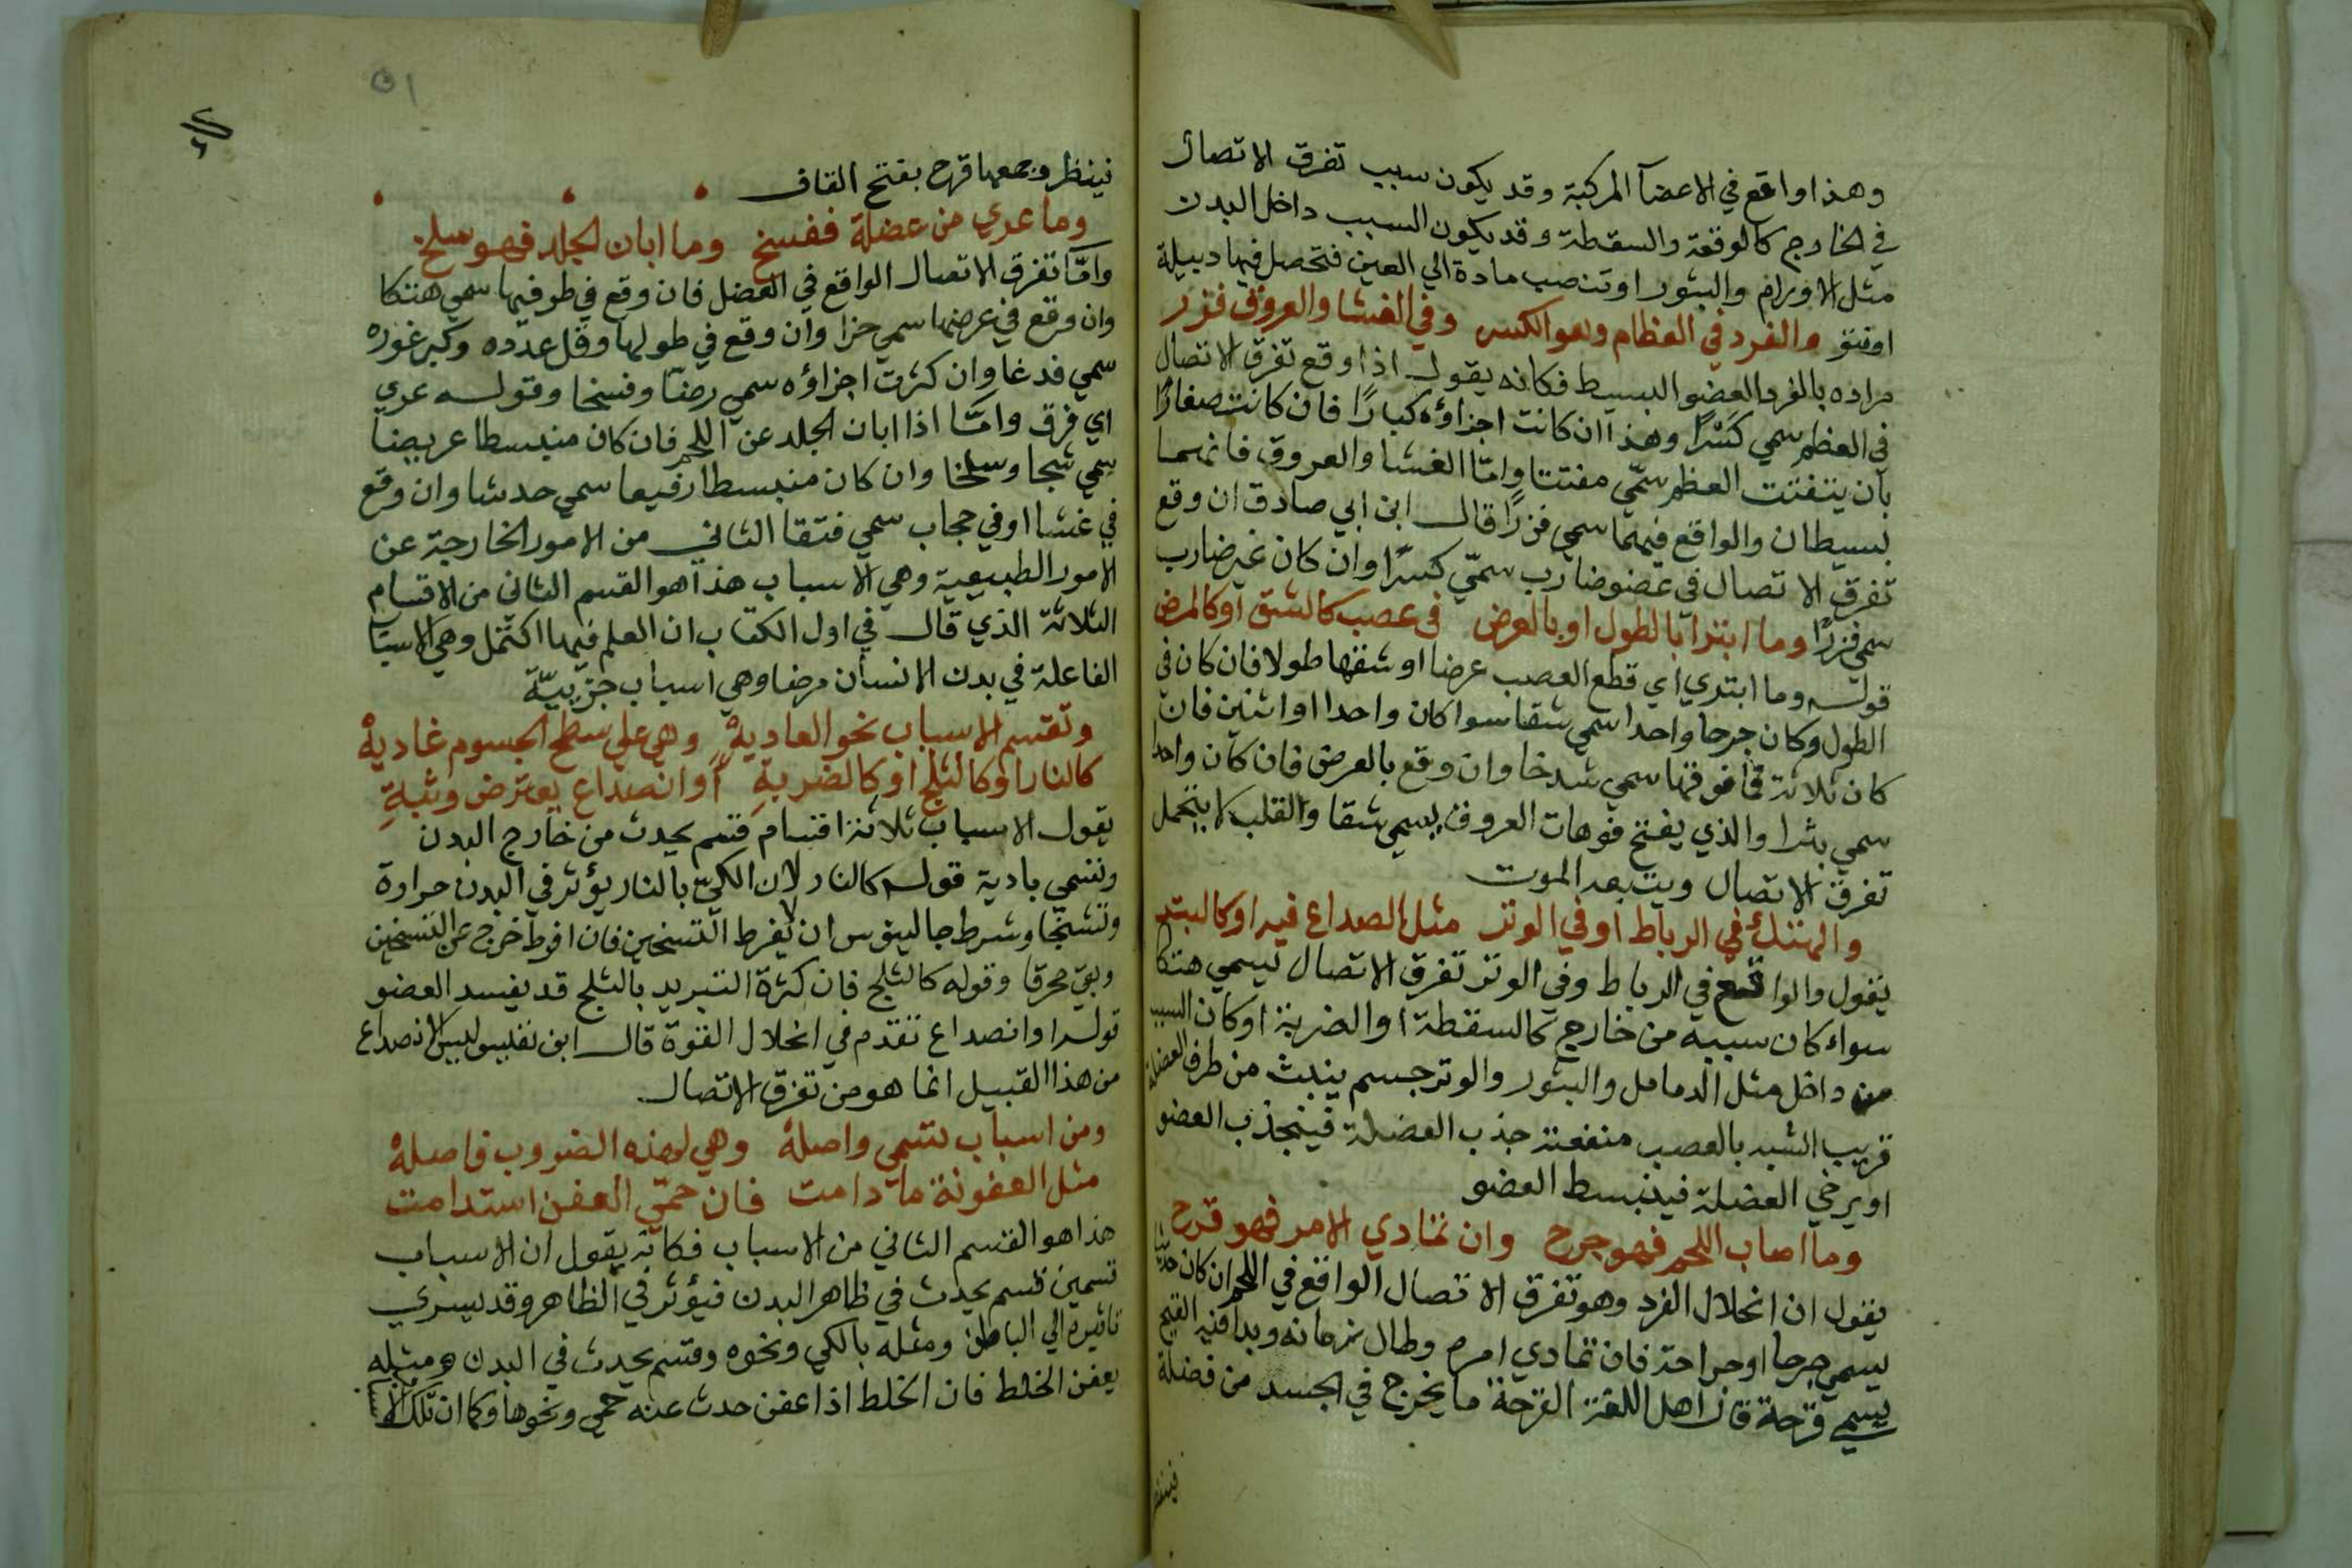 وهذا واقع في الاعضآ المركبة وقد يكون سبب تفرق الاتصال
في الخارج كالوقعة والسقطة وقد يكون السبب داخل البدن
مثل الاورام والبثور او تنصب مادة الي العين فتحصل فيها دبيلة
او نتو والفرد في العظام وهو الكسر وفي الغشا والعروق فزر
مراده بالفرد العضو البسيط فكانه يقول اذا وقع تفرق الاتصال
في العظم سمي كسْرًا وهذا ان كانت اجزاؤه كبارًا فان كانت صغارًا
بان يتفتت العظم سمّي مفتتا وامّا الغشا والعروق فانهما
بسيطان والواقع فيهما سمي فزرًا قال ابن ابي صادق ان وقع
تفرق الاتصال في عضو ضارب سمّي كسرًا وان كان غير ضارب
سمي فزرًا وما ابترا بالطول او بالعرض في عصب كالشق او كالمرض
قوله وما ابتدي اي قطع العصب عرضا او شقها طولا فان كان في
الطول وكان جرحا واحدا سمي شقا سوا كان واحدا او اثنين فان
كان ثلاثة فما فوقها سمي شدخا وان وقع بالعرض فان كان واحدا
سمي بثرا والذي يفتح فوهات العروق يسمي شقا والقلب لا يتحمل
تفرق الاتصال ويتبعه الموت
والهتك في الرباط او في الوتر مثل الصداع فيه او كالبتر
يقول والواقع في الرباط وفي الوتر تفرق الاتصال يسمي هتكا
سواء كان سببه من خارج كالسقطة او الضربة او كان السبب
من داخل مثل الدمامل والبثور والوتر جسم ينبث من طرف العضلة
قريب الشبه بالعصب منفعته جذب العضلة فينجذب العضو
او يرخي العضلة فينبسط العضو
وما اصاب اللحم فهو جرح وان تمادي الامر فهو قرح
يقول ان انحلال الفرد وهو تفرق الاتصال الواقع في اللحم ان كان حديثا
يسمي جرحا او جراحة فان تمادي امره وطال زمانه وبدا فيه القيح
يسمي قرحة قال اهل اللغة القرحة ما يخرج في الجسد من فضلة
فينظر
٥١
فينظر وجمعها قرح بفتح القاف
وما عري من عضلة ففسخ وما ابان الجلد فهو سلخ
وامّا تفرق الاتصال الواقع في العضل فان وقع في طرفيها سمي هتكا
وان وقع في عرضها سمي حزا وان وقع في طولها وقل عدده وكبر غوره
سمي فدغا وان كثرت اجزاؤه سمي رضّا وفسخا وقوله عري
اي فرق وامّا اذا ابان الجلد عن اللحم فان كان منبسطا عريضا
سمي شجا وسلخا وان كان منبسطا رفيعا سمي حدشا وان وقع
في غشا او في حجاب سمي فتقا الثاني من الامور الخارجة عن
الامور الطبيعية وهي الاسباب هذا هو القسم الثاني من الاقسام
الثلاثة الذي قال في اول الكتاب ان العلم فيها اكتمل وهي الاسباب
الفاعلة في بدن الانسان مرضا وهي اسباب جزييّة
وتقسم الاسباب نحو العادية وهي علي سطح الجسوم غادية
كالنار او كالثلج او كالضربة او انصداع يعترض وثبة
يقول الاسباب ثلاثة اقسام قسم يحدث من خارج البدن
وتسمي بادية قوله كالنار لان الكيّ بالنار يؤثر في البدن حرارة
وتشنجا وشرط جالينوس ان لا يفرط التسخين فان افرط خرج عن التسخين
وبقي محرقا وقوله كالثلج فان كثرة التبريد بالثلج قد يفسد العضو
قوله او انصداع تقدم في انحلال القوة قال ابن نفيس وليس الانصداع
من هذا القبيل انما هو من تفرق الاتصال
ومن اسباب تسمي واصلة وهي لهذه الضروب فاصلة
مثل العفونة ما دامت فان حمّي العفن استدامت
هذا هو القسم الثاني من الاسباب فكانه يقول ان الاسباب
قسمين قسم يحدث في ظاهر البدن فيؤثر في الظاهر وقد يسري
تاثيره الي الباطن ومثله بالكي ونحوه وقسم يحدث في البدن ومثله
بعفن الخلط فان الخلط اذا عفن حدث عنه حمي ونحوها وكما ان تلك